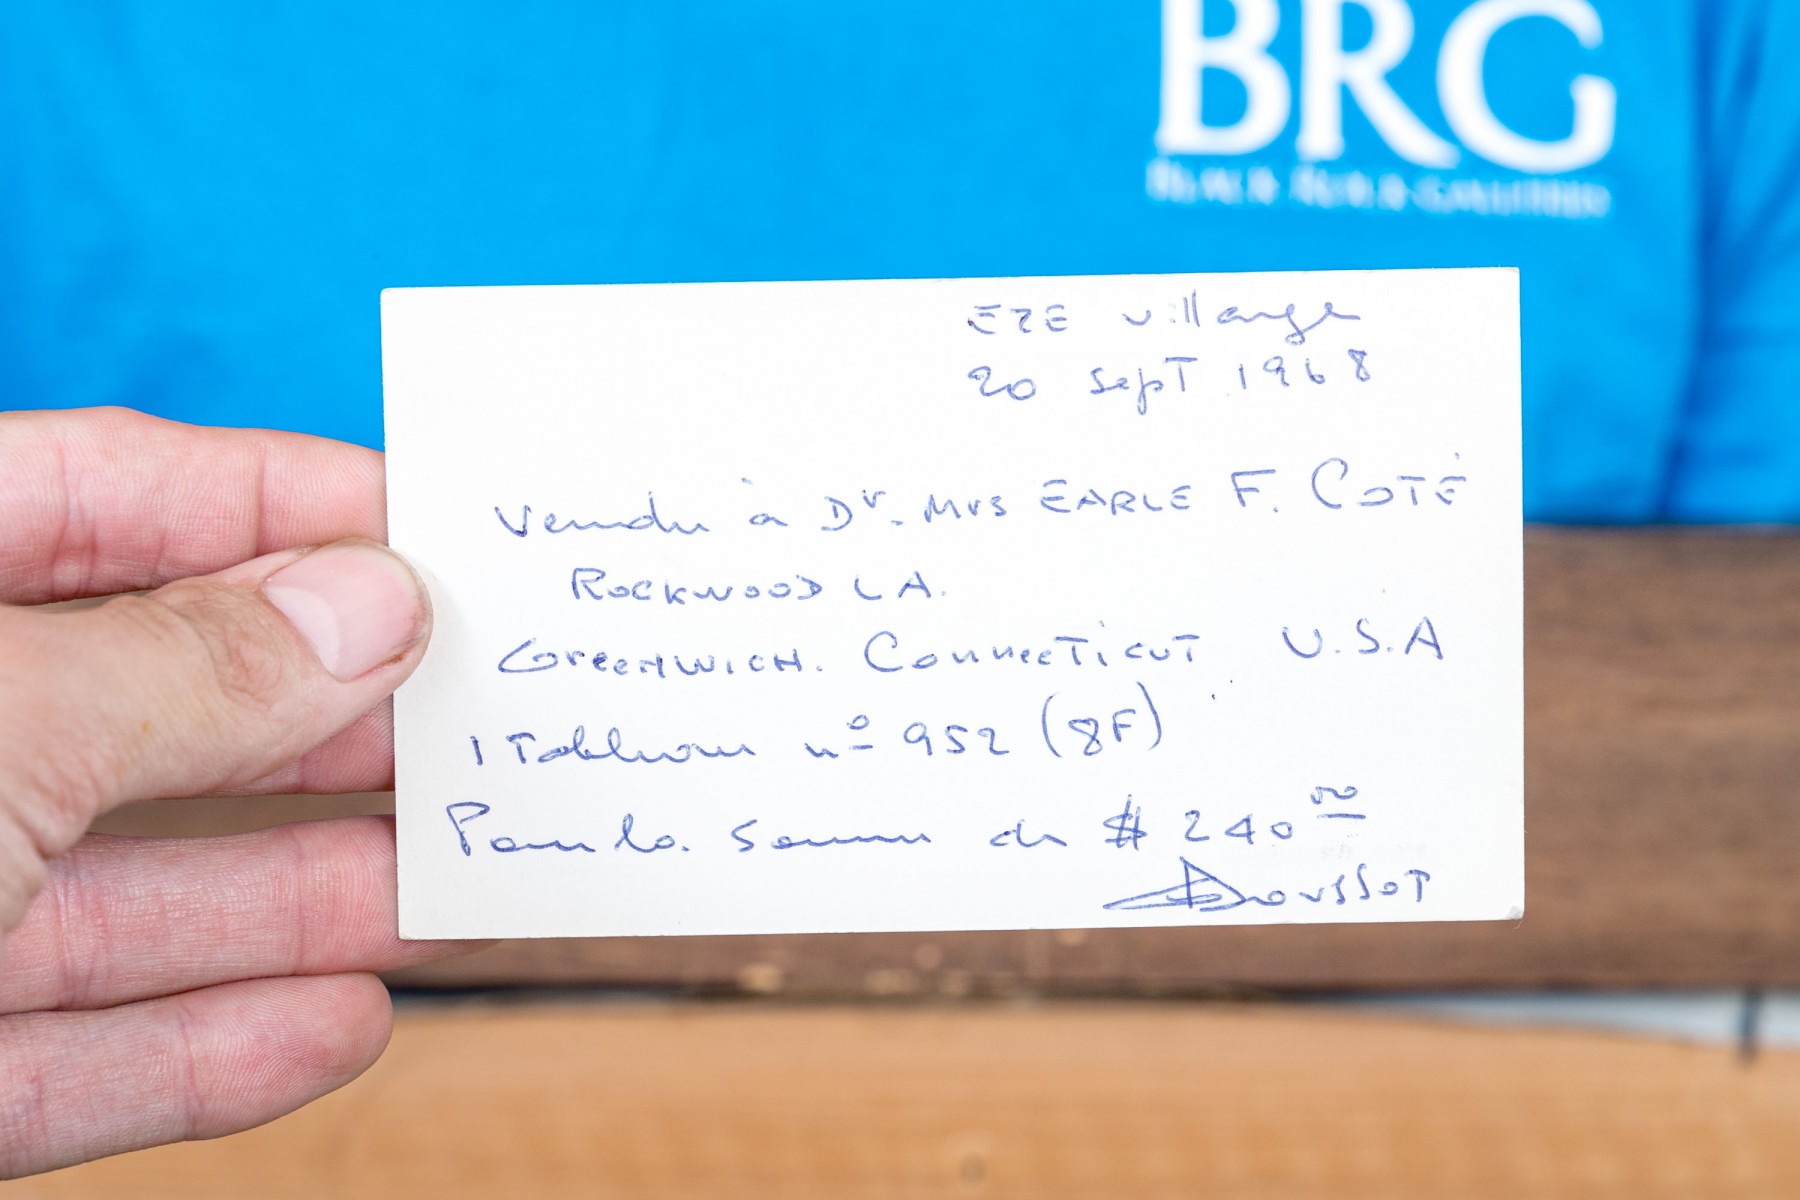 BRG
BLACK ROCK GALLERIES
EZE village
20 sept 1968
Vendu à Dr. Mrs EARLE F. COTÉ
ROCKWOOD LA.
GREENWICH. CONNECTICUT U.S.A
1 Tableau nº 952 (8F)
Pour la somme de $ 240 00
Doussot